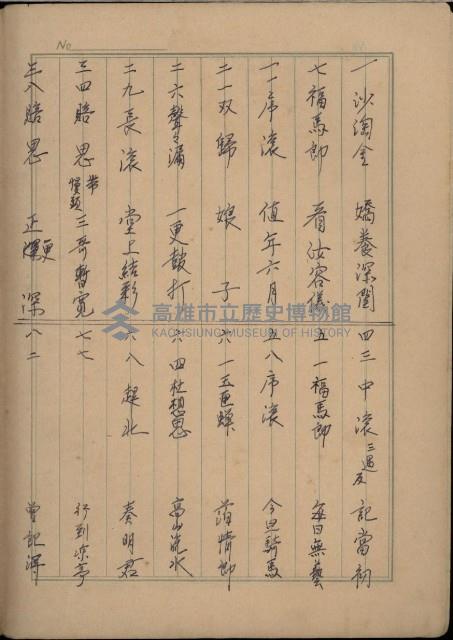 No
一 沙淘金 嬌養深閨 四三 中滾 三遇反 記當初
七 福馬郎 看汝容儀 五一 福馬郎 每日無藝
一一 序滾 值年六月 五八 序滾 今旦騎馬
二一 双歸 娘子 六一 玉匝蟬 薄情郎
二六 聲聲滿 一更鼓打 六四 杜相思 高山流水
二九 長滾 堂上結彩 六八 趕北 奏明君
三四 賠思 帶慢頭 三哥暫寬 七七 行到涼亭
三八 賠思 正更深 八二 曾記得
高雄市立歷史博物館
KAOHSIUNG MUSEUM OF HISTORY